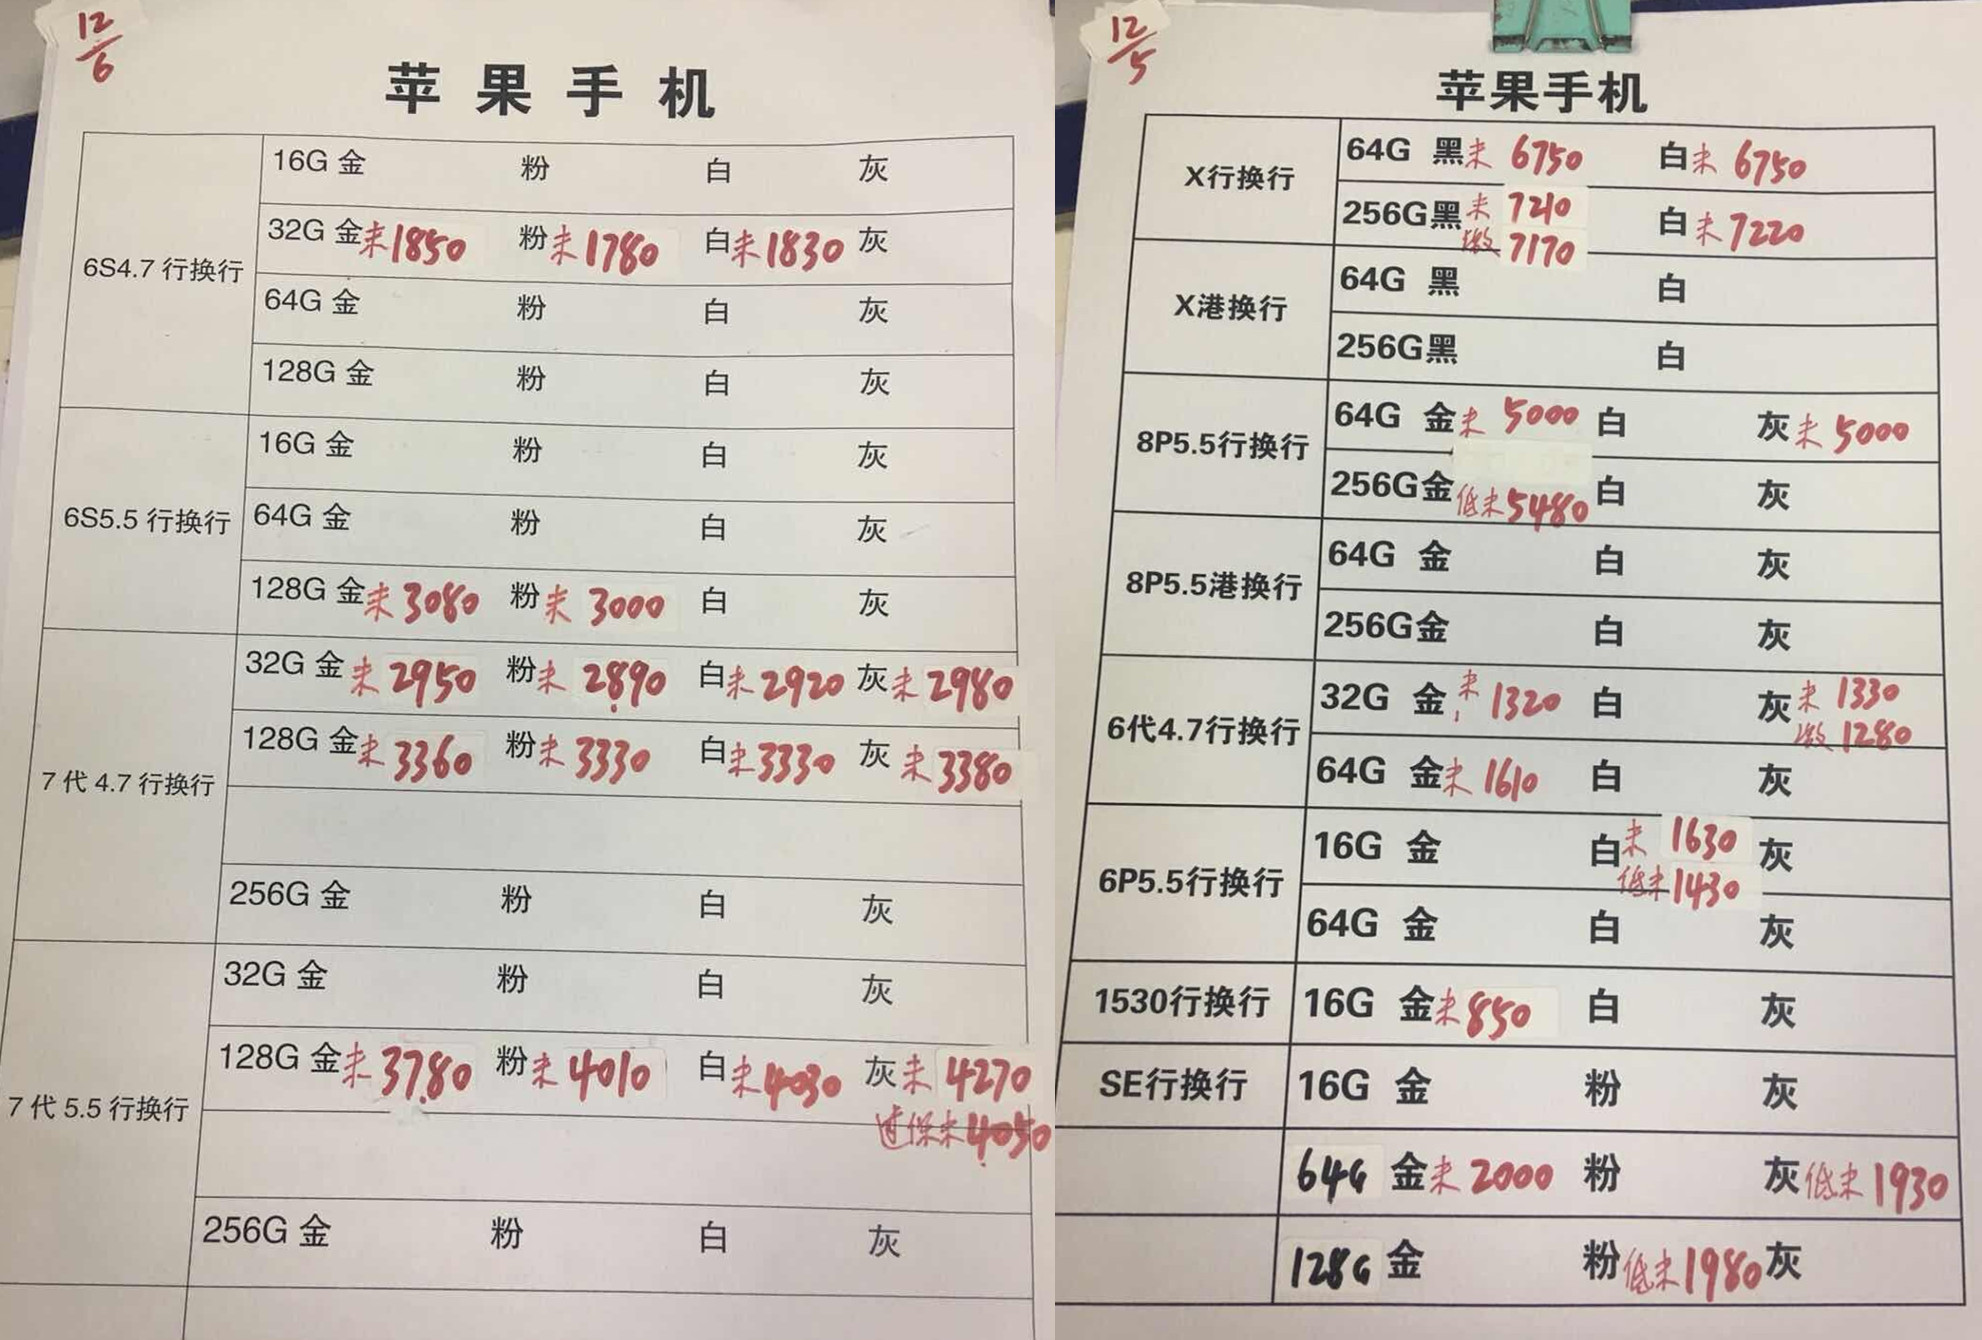 12/6
苹果手机
6S4.7 行换行
16G 金 粉 白 灰
32G 金未1850 粉未1780 白未1830 灰
64G 金 粉 白 灰
128G 金 粉 白 灰
6S5.5 行换行
16G 金 粉 白 灰
64G 金 粉 白 灰
128G 金未3080 粉未3000 白 灰
7代 4.7 行换行
32G 金未2950 粉未2890 白未2920 灰未2980
128G 金未3360 粉未3330 白未3330 灰未3380
256G 金 粉 白 灰
7代 5.5 行换行
32G 金 粉 白 灰
128G 金未3780 粉未4010 白未4030 灰未4270
过保未4050
256G 金 粉 白 灰
12/5
苹果手机
X行换行
64G 黑未6750 白未6750
256G黑未7210 白未7220
激7170
X港换行
64G 黑 白
256G黑 白
8P5.5行换行
64G 金未5000 白 灰未5000
256G金低未5480 白 灰
8P5.5港换行
64G 金 白 灰
256G金 白 灰
6代4.7行换行
32G 金未1320 白 灰未1330
激1280
64G 金未1610 白 灰
6P5.5行换行
16G 金 白未1630 灰
低未1430
64G 金 白 灰
1530行换行
16G 金未850 白 灰
SE行换行
16G 金 粉 灰
64G 金未2000 粉 灰低未1930
128G 金 粉低未1980 灰